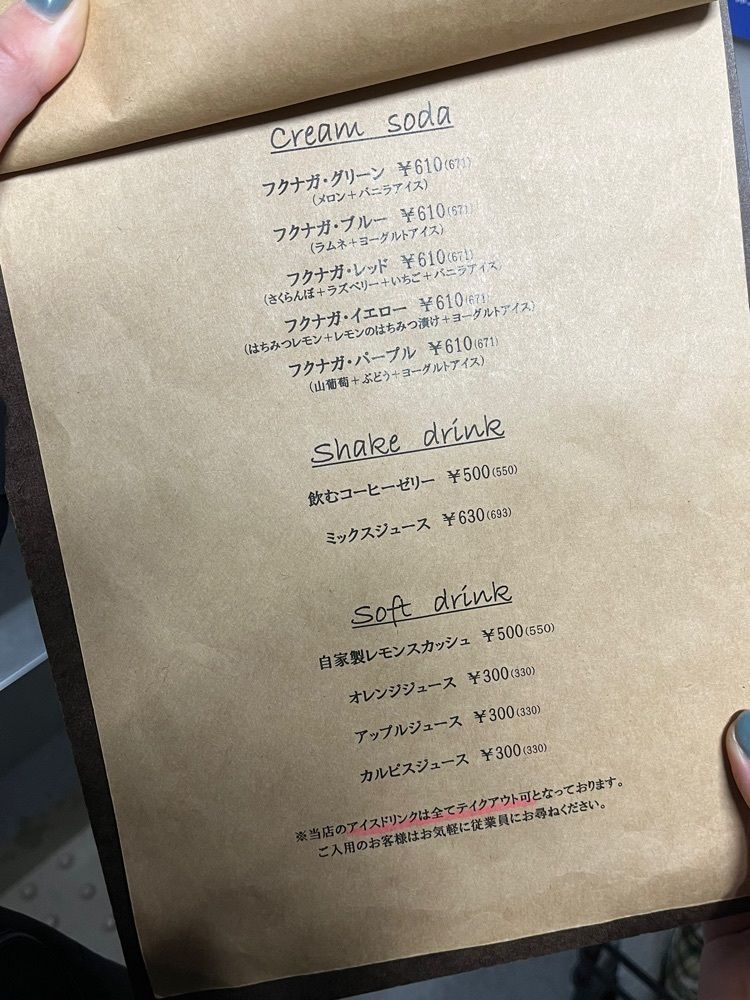 Cream soda
フクナガ・グリーン ￥610(671)
(メロン＋バニラアイス)
フクナガ・ブルー ￥610(671)
(ラムネ＋ヨーグルトアイス)
フクナガ・レッド ￥610(671)
(さくらんぼ＋ラズベリー＋いちご＋バニラアイス)
フクナガ・イエロー ￥610(671)
(はちみつレモン＋レモンのはちみつ漬け＋ヨーグルトアイス)
フクナガ・パープル ￥610(671)
(山葡萄＋ぶどう＋ヨーグルトアイス)
Shake drink
飲むコーヒーゼリー ￥500(550)
ミックスジュース ￥630(693)
Soft drink
自家製レモンスカッシュ ￥500(550)
オレンジジュース ￥300(330)
アップルジュース ￥300(330)
カルピスジュース ￥300(330)
※当店のアイスドリンクは全てテイクアウト可となっております。
ご入用のお客様はお気軽に従業員にお尋ねください。